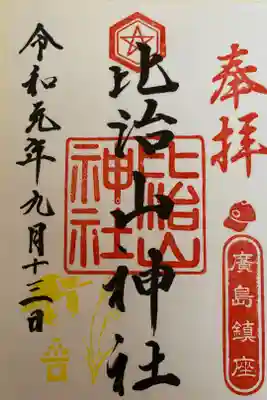 奉拝
廣島鎮座
比治山神社
比治山
神社
令和元年九月十三日